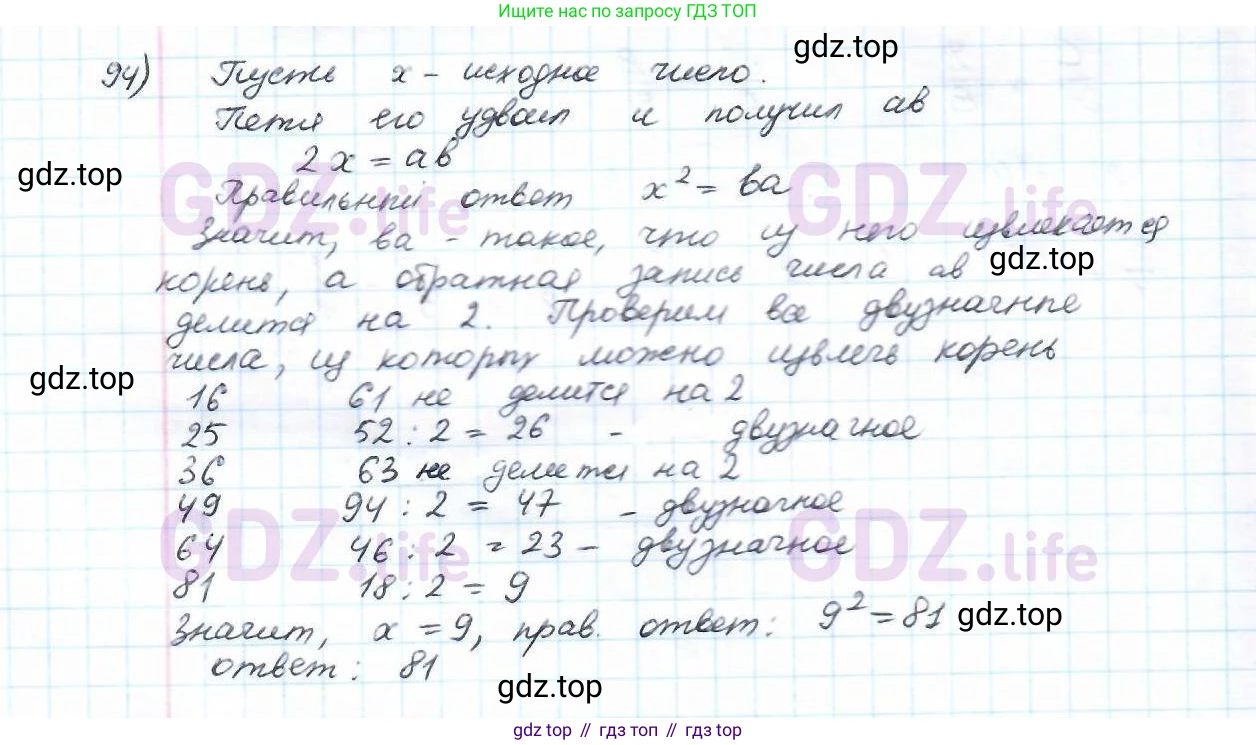 Ищите нас по запросу ГДЗ ТОП
gdz.top
94) Пусть x - исходное число.
Петя его удвоил и получил ав
2x = ав
gdz.top
Правильный ответ x² = ва
GDZ.life GDZ.life
Значит, ва - такое, что из него извлекается
корень, а обратная запись числа ав
gdz.top
делится на 2. Проверим все двузначные
числа, из которых можно извлечь корень
gdz.top
16 61 не делится на 2
25 52 : 2 = 26 - двузначное
36 63 не делится на 2
49 94 : 2 = 47 - двузначное
GDZ.life GDZ.life
64 46 : 2 = 23 - двузначное
81 18 : 2 = 9
Значит, x = 9, прав. ответ: 9² = 81
gdz.top
ответ: 81
gdz.top
gdz top // гдз топ // gdz top